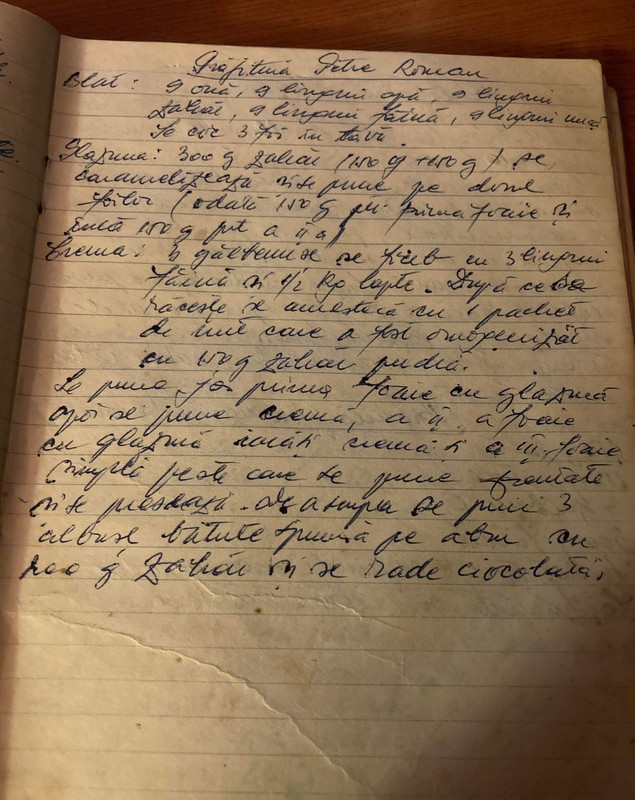 Prăjitură Petre Roman
Blat: 9 ouă, 9 linguri apă, 9 linguri
zahăr, 9 linguri făină, 9 linguri
Se coc 3 foi în tavă
Glazura: 300 g zahăr (150 g + 150 g) se
caramelizează și se pune pe două
foilor (odată 150 g pt prima foaie și
încă 150 g pt a II a)
Crema: gălbenuș se fierb cu 3 linguri
făină și 1/2 kg lapte. După ce se
răcește se amestecă cu 1 pachet
de unt care a fost omogenizat
cu 150 g zahăr pudră.
Se pune jos prima foaie cu glazură
apoi se pune cremă, a II a foaie
cu glazură iarăși cremă și a III foaie
simplă peste care se pune
și se presează. Deasupra se pun 3
albușe bătute spumă pe abur cu
200 g zahăr și se rade ciocolată.